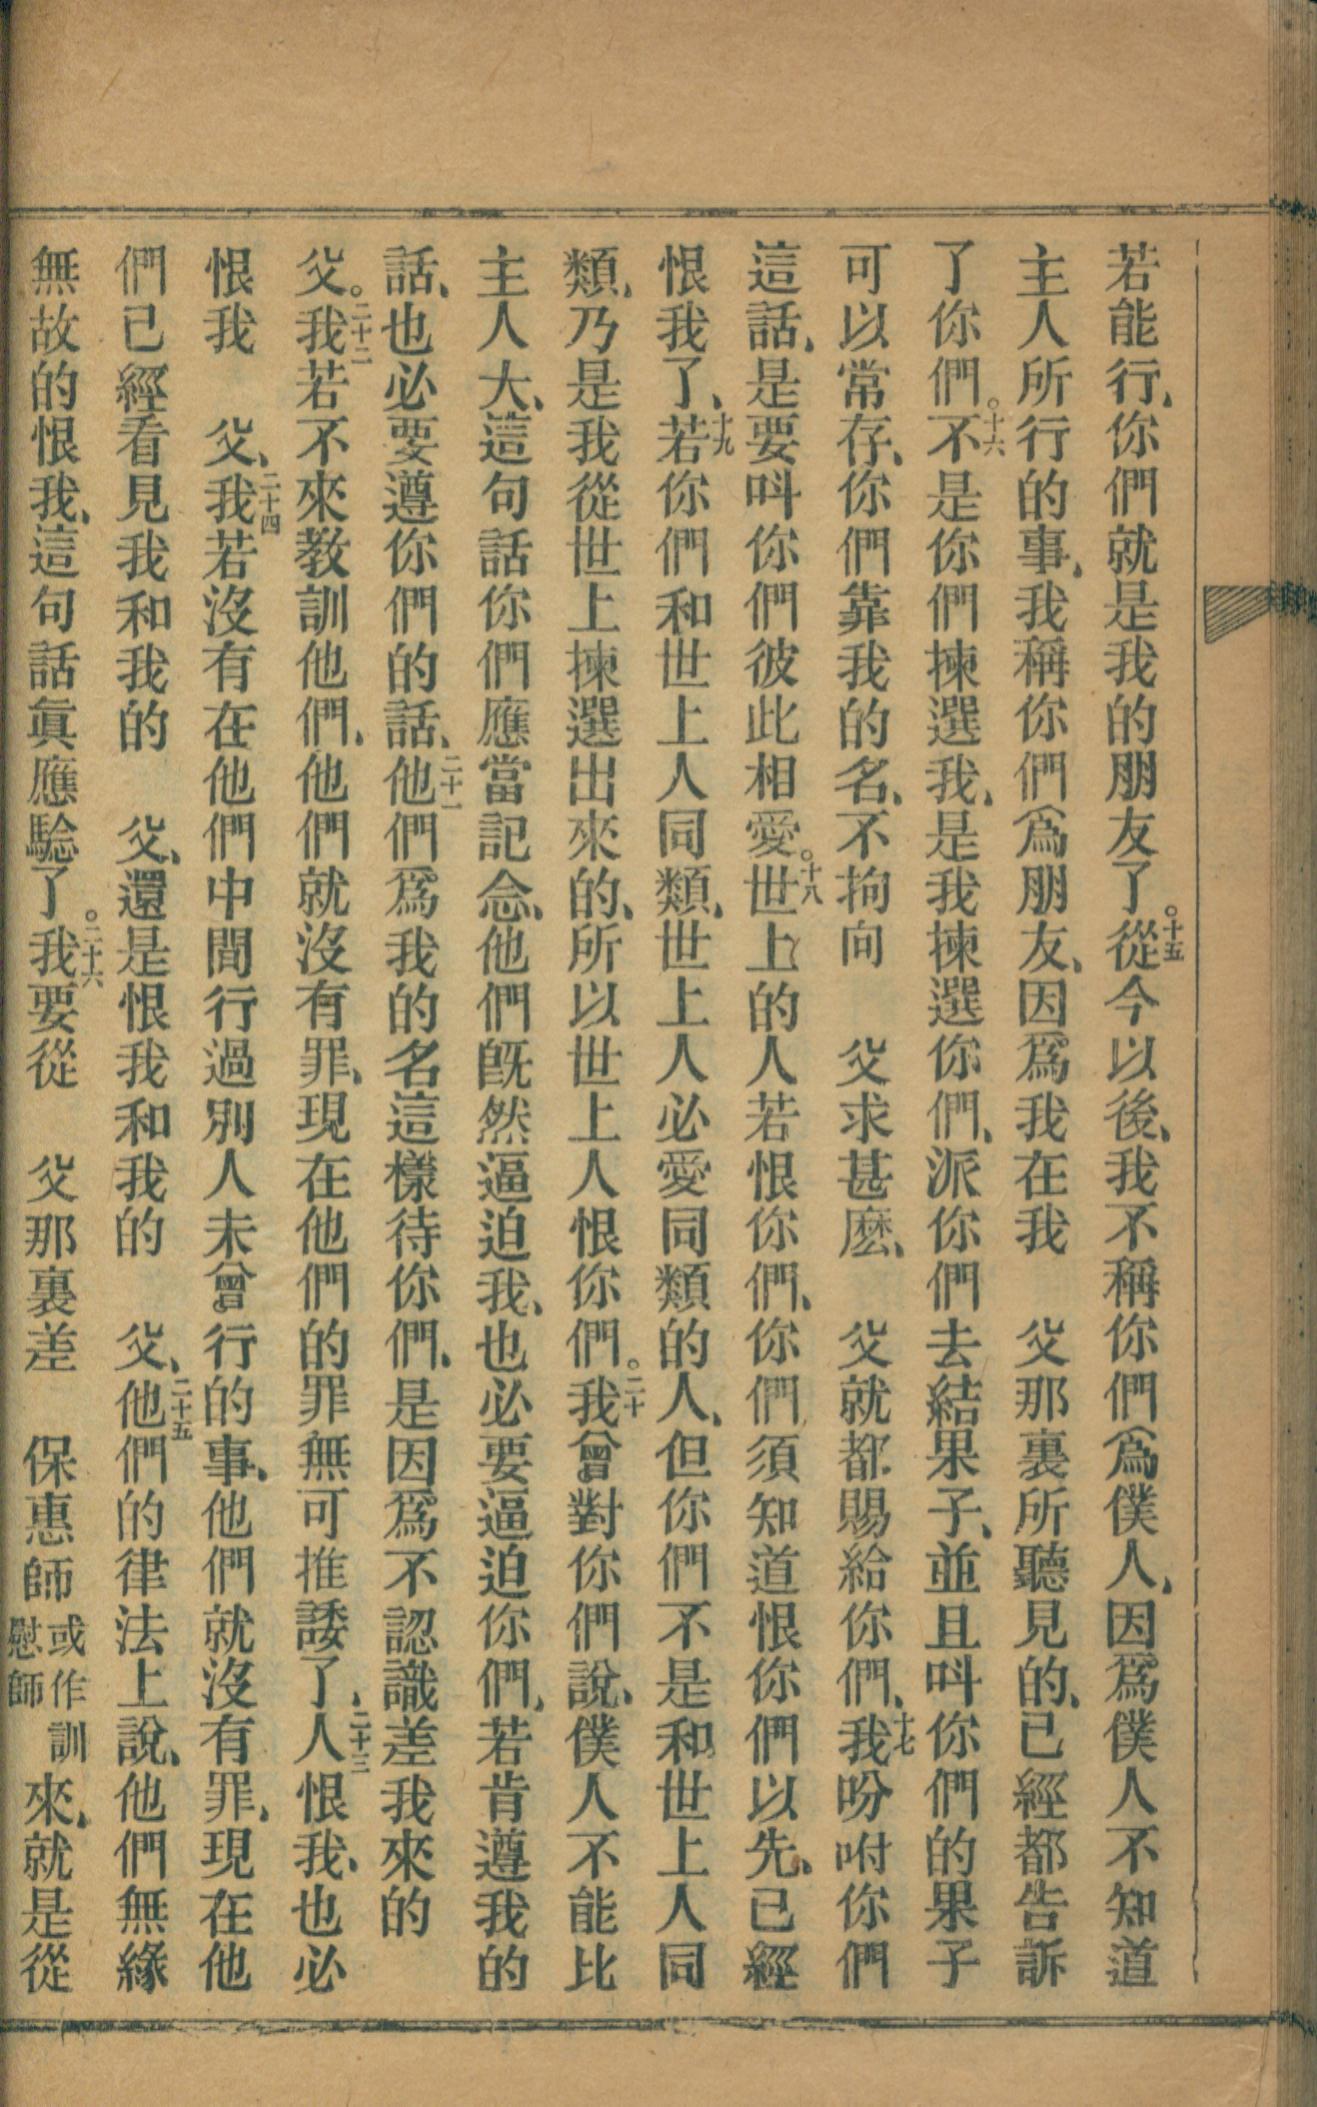 若能行、你們就是我的朋友了。十五從今以後、我不稱你們爲僕人、因爲僕人不知道
主人所行的事、我稱你們爲朋友、因爲我在我　父那裏所聽見的、已經都告訴
了你們。十六不是你們揀選我、是我揀選你們、派你們去結果子、並且呌你們的果子
可以常存、你們靠我的名、不拘向　父求甚麽、　父就都賜給你們、十七我吩咐你們
這話、是要呌你們彼此相愛。十八世上的人若恨你們、你們須知道恨你們以先、已經
恨我了、十九若你們和世上人同類、世上人必愛同類的人、但你們不是和世上人同
類、乃是我從世上揀選出來的、所以世上人恨你們。二十我曾對你們說、僕人不能比
主人大、這句話你們應當記念、他們旣然逼迫我、也必要逼迫你們、若肯遵我的
話、也必要遵你們的話、二十一他們爲我的名這樣待你們、是因爲不認識差我來的
父。二十二我若不來教訓他們、他們就沒有罪、現在他們的罪無可推諉了、二十三人恨我、也必
恨我　父、二十四我若沒有在他們中間行過別人未曾行的事、他們就沒有罪、現在他
們已經看見我和我的　父、還是恨我和我的　父、二十五他們的律法上說、他們無緣
無故的恨我、這句話眞應驗了。二十六我要從　父那裏差　保惠師或作訓慰師來、就是從